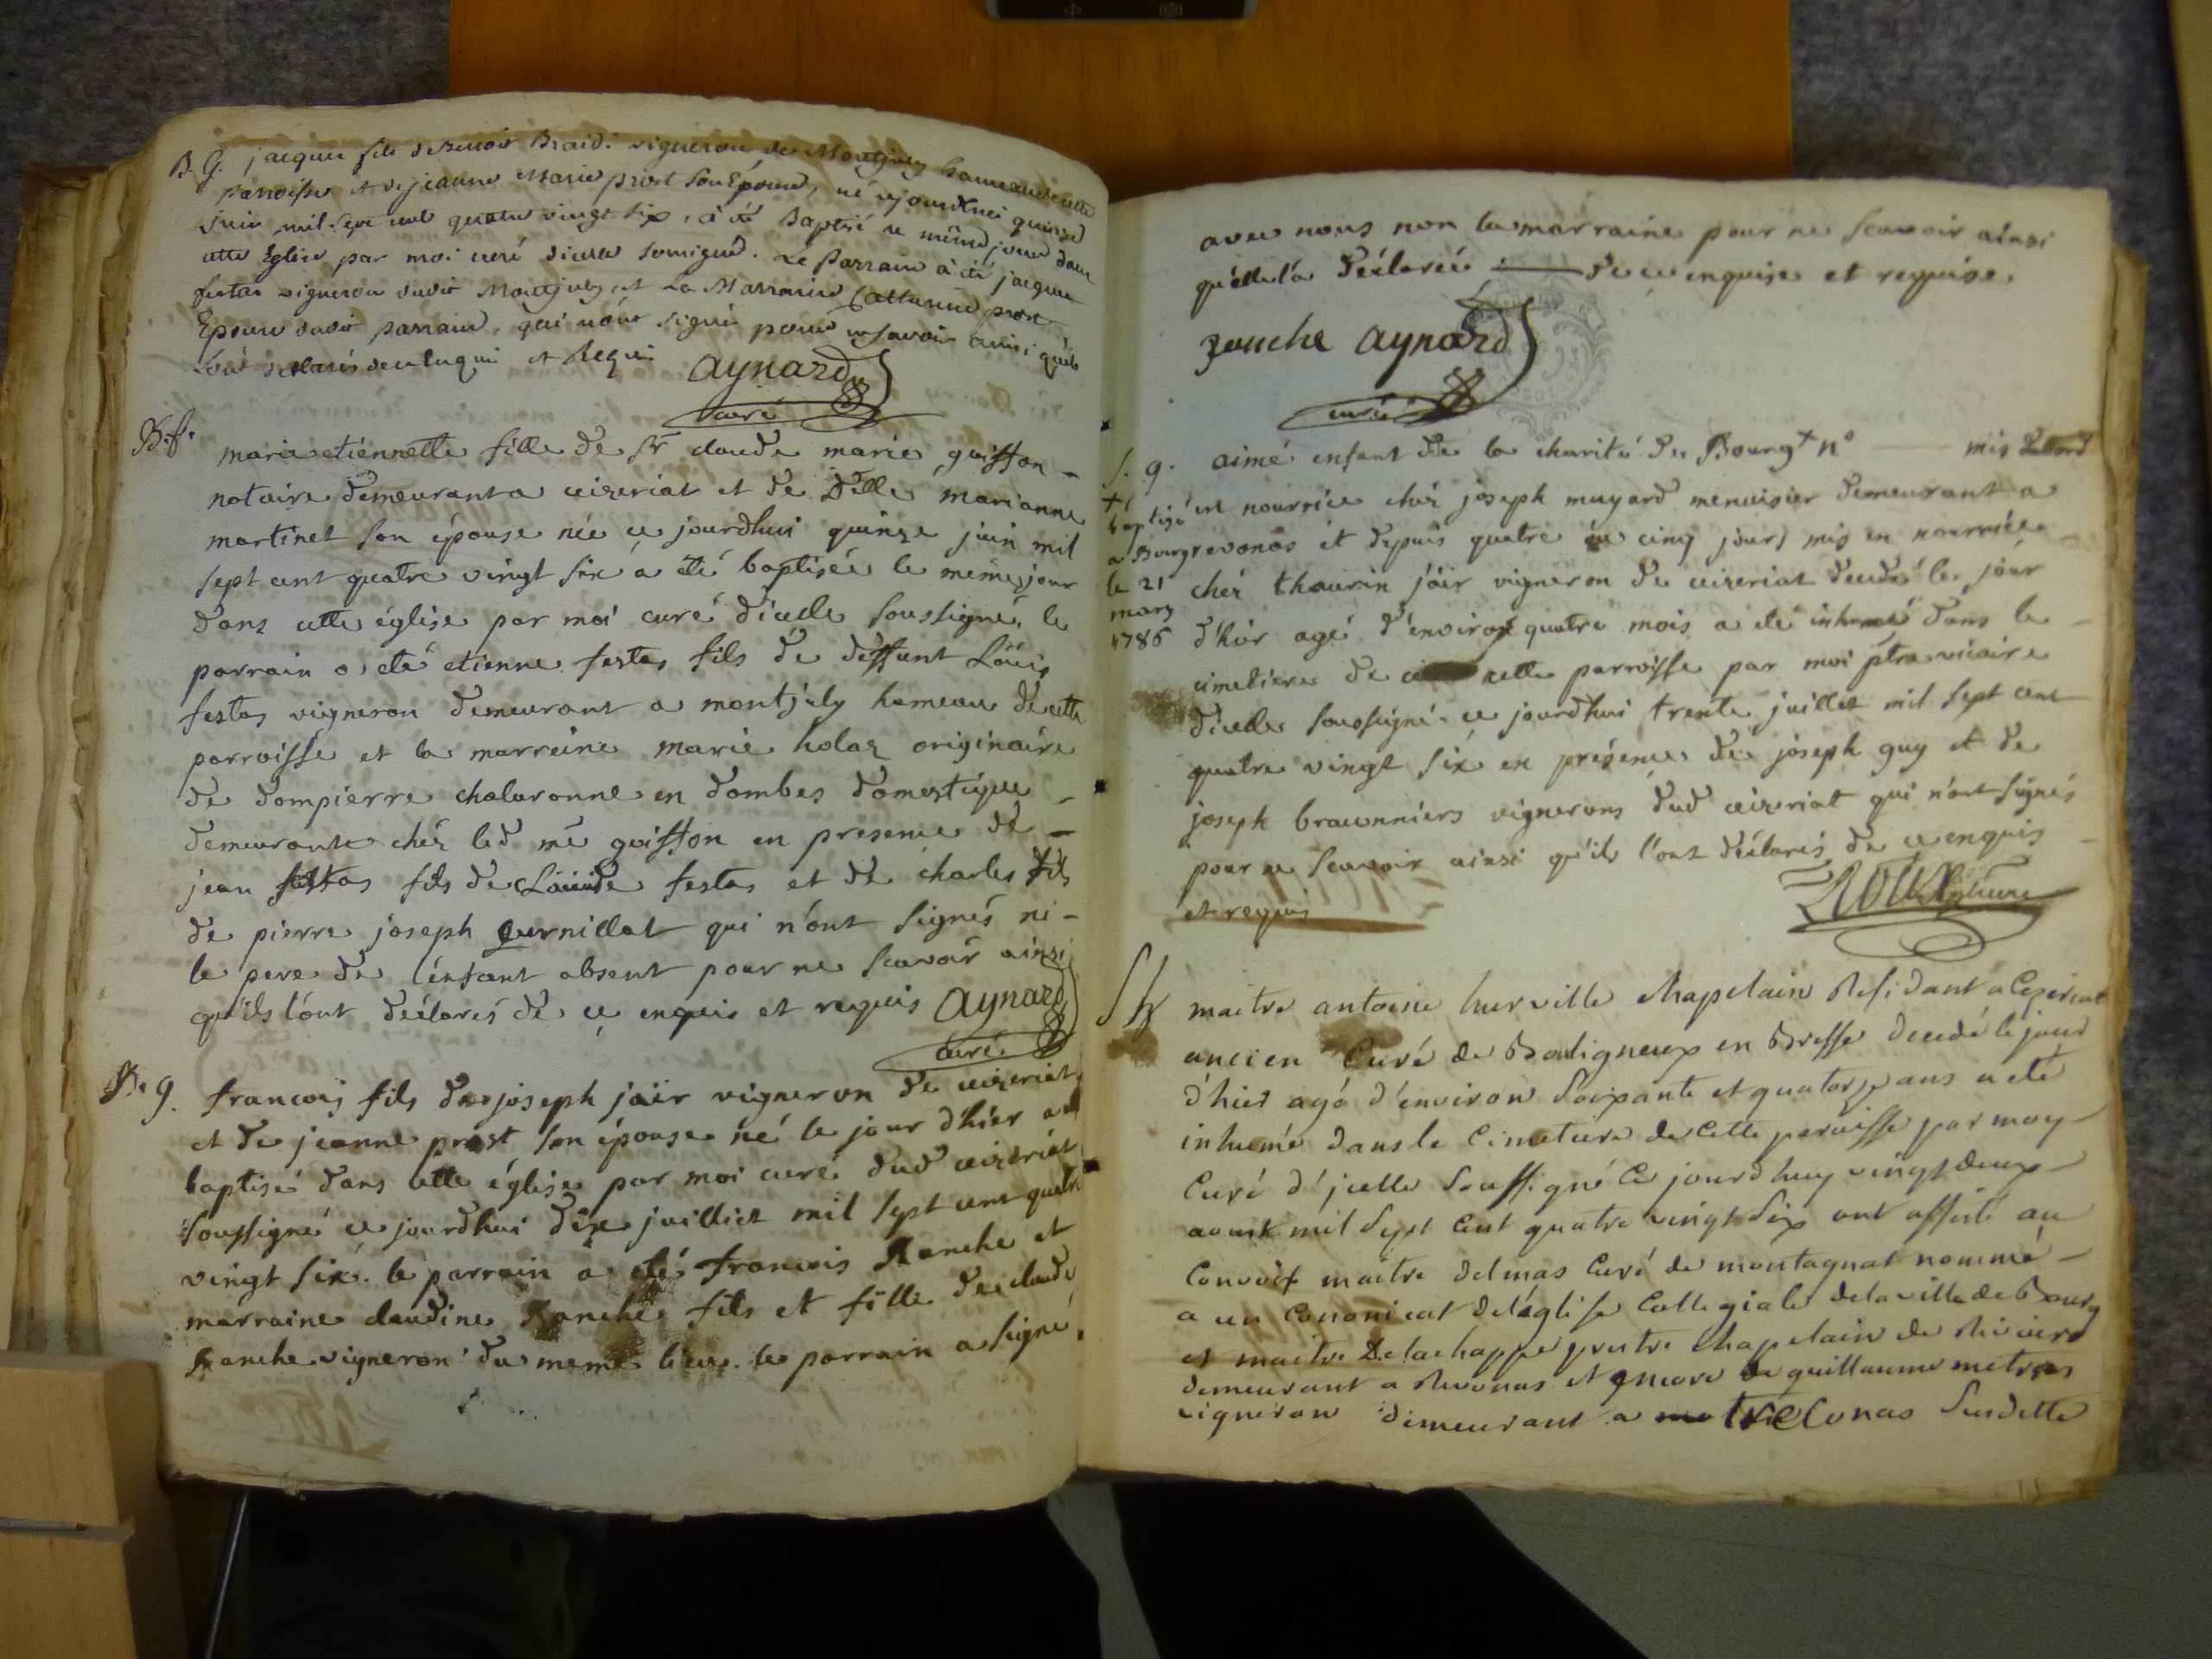 B. G. jacques fils de Benoit Braidi vigneron de Montjuly hameau de cette
paroisse et de jeanne Marie prost son Epouse, né cejourdhui quinze
juin mil sept cent quatre vingt six, à été Baptisé le même jour dans
cette Eglise par moi curé dicelle soussigné. Le Parrain à été jacques
festas vigneron dudit Montjuly et La Marraine prost
Epouse dudit parrain, qui n'ont signé pour ne savoir ainsi qu'ils
L'ont déclarés de ce enquis et Requis aynard
curé
B. f. marie etiennette fille de sr claude marie guiffon -
notaire demeurant a ceizeriat et de delle marianne
martinet son épouse née ce jourdhui quinze juin mil
sept cent quatre vingt six a été baptisée le meme jour
dans cette église par moi curé dicelle soussigné, le
parrain a été etienne festas fils de deffunt Loüis
festas vigneron demeurant a montjuly hameau de cette
parroisse et la marraine marie holaz originaire
de dompierre chalaronne en dombes domestique -
demeurante chéz led me guiffon en presence de -
jean festas fils de Claude festas et de charles fils
de pierre joseph curnillat qui n'ont signés ni -
le pere de l'enfant absent pour ne scavoir ainsi
qu'ils l'ont déclarés de ce enquis et requis aynard
curé
B. g. francois fils de joseph jaïr vigneron de ceizeriat
et de jeanne prost son épouse né le jour d'hier a été
baptisé dans cette église par moi curé dud ceizériat
soussigné ce jourdhui dix juilliet mil sept cent quatre
vingt six. le parrain a été francois Ranche et
marraine claudine Ranche fils et fille de claude
Ranche vigneron du meme lieu. le parrain a signé
avec nous non la marraine pour ne scavoir ainsi
qu'elle l'a déclareé de ce enquise et requise
ranche aynard
curé
S. g. aimé enfant de la charité de Bourg + n° mis d'abord
+ baptisé a Bourg le 21 mars 1786
en nourrice chéz joseph mugard menuisier demeurant a
revonas et depuis quatre ou cinq jours mis en nourrice
chéz thaurin jaïr vigneron de ceizeriat decedé le jour
d'hiér agé d'environ quatre mois a été inhumé dans le -
cimetiere de cette parroisse par moi ptre vicaire
dicelle soussigné. ce jourdhui trente juillet mil sept cent
quatre vingt six en présence de joseph guy et de
joseph vignerons dud ceizeriat qui n'ont signés
pour ne scavoir ainsi qu'ils l'ont déclarés de ce enquis -
et requis Roux
S h maitre antoine hurville chapelain Residant a Cezeriat
ancien Curé de Bouligneux en Bresse decedé le jour
d'hier agé d'environ Soixante et quatorze ans a eté
inhumé dans le Cimetiere de Cette paroisse par moy -
Curé d'jcelle Soussigné Ce jourdhuy vingt deux -
aoust mil Sept Cent quatre vingt Six ont assisté au
Convoi maitre delmas Curé de montagnat nommé -
a un Canonicat de l'église Collegiale de la ville de Bourg
et maitre delachappe pretre chapelain de Riviere
demeurant a Revonas et encore de guillaume metras
vigneron demeurant a treconas Susdette